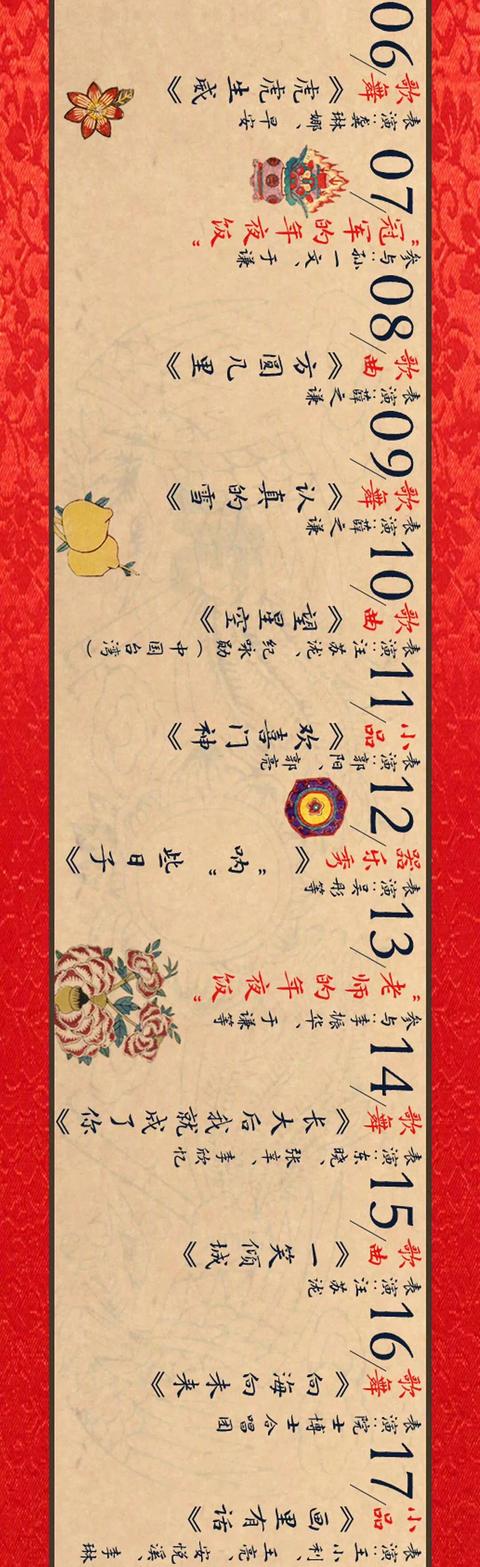 06/
歌舞《虎虎生威》
表演：龚琳娜、早安
07/
“冠军的年夜饭”
参与：孙一文、于谦
08/
歌曲《方圆几里》
表演：薛之谦
09/
歌舞《认真的雪》
表演：薛之谦
10/
歌曲《望星空》
表演：汪苏泷、纪咏勋（中国台湾）
11/
小品《欢喜门神》
表演：郭阳、郭亮
12/
器乐秀《“呐”些日子》
表演：吴彤等
13/
“老师的年夜饭”
参与：李振华、于谦等
14/
歌舞《长大后我就成了你》
表演：东晓、张辛、李欣忆
15/
歌曲《一笑倾城》
表演：汪苏泷
16/
歌舞《向海向未来》
表演：院士博士合唱团
17/
小品《画里有话》
表演：王小利、王亮、安悦溪、李琳